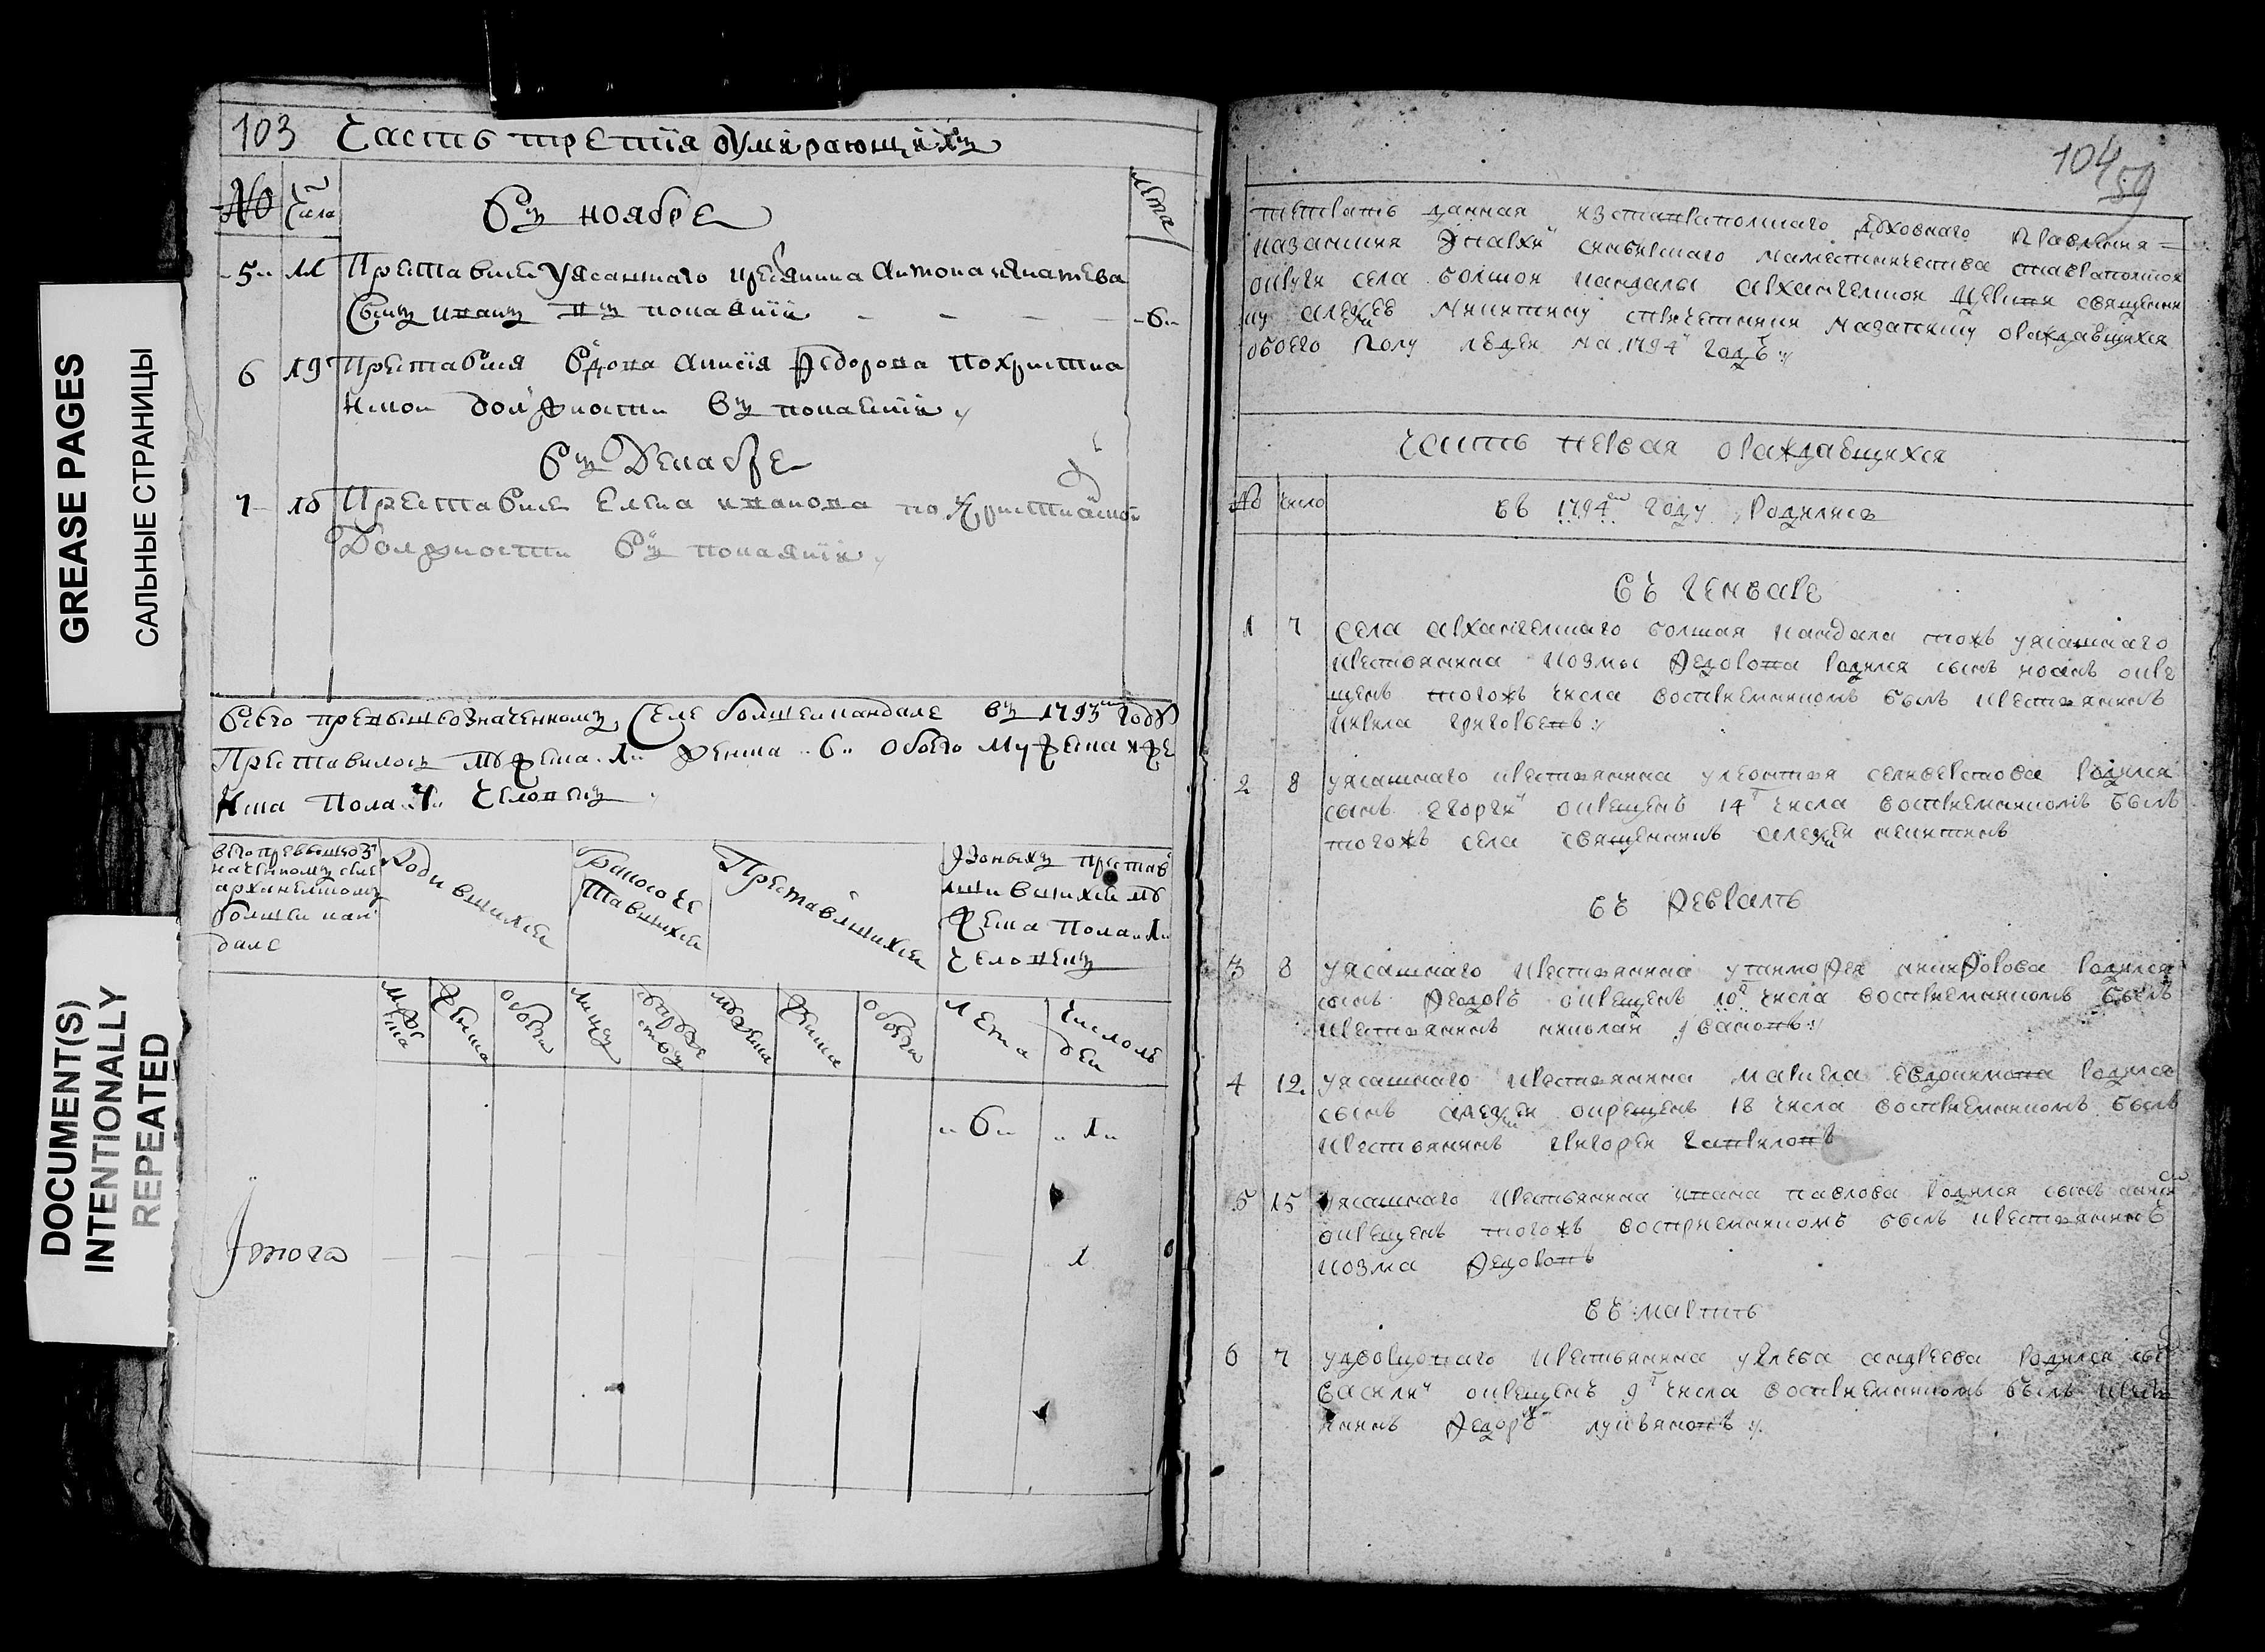 GREASE PAGES
САЛЬНЫЕ СТРАНИЦЫ
DOCUMENT(S)
INTENTIONALLY
REPEATED
103 Часть третїя оумирающихъ
№ Числа Въ ноябре лета
5 11 Преставился Уясашнаго крестьянина Антона Игнатева
Сынъ иванъ въ покаянїи 6
6 19 Преставился Вдова Анисїя Федорова по христиа
нской должности въ покаянїи
Въ Декабре
7 16 Преставися Елена иванова по Христианской
Должности Въ покаянїи
Всего превышеозначенному Селе болшеикандале въ 1793м годъ
Преставилось мужеска 1 женска 6 обоего мужеска и же
нска пола 7 человекъ
всего превышеоз
наченному селе
архангелскому
болшеи кан
дале
Родившихся
Бракосоче
тавшихся
Преставившихся
Изоныхъ преставив
шихся му
жеска пола 1
человекъ
мужеска
женска
обоего
мужеска
женска
обоего
лета
число людеи
6 1
Итого 1
104
59
тетрать данная изставрополского духовнаго правления
казанския епархи синбирского наместничества ставрополской
округи села болшой кандалы архангелской церкви священни
ку алексею никитину спричетники мазаписки ораждавшихся
обоего полу людей на 1794 годъ
Часть первая ораждавшихся
№ число въ 1794м году Родились
въ генваре
1 7 села архангелскаго болшая кандала тожъ уясашнаго
крестьянина козмы федорова родился сынъ иоанъ окре
щенъ тогожъ числа восприемникомъ былъ крестьянинъ
кирила григорьевъ
2 8 уясашнаго крестьянина улеонтья селиверстова родился
сынъ егорги окрещенъ 14 числа восприемникомъ былъ
тогожъ села священникъ алексей никитинъ
въ февралѣ
3 8 уясашнаго крестьянина утимофея никифорова родился
сынъ федоръ окрещенъ 10 числа восприемникомъ былъ
крестьянинъ николай ивановъ
4 12 уясашнаго крестьянина маркела евдокимова родился
сынъ алексей окрещенъ 18 числа восприемникомъ былъ
крестьянинъ григорей гавриловъ
5 15 уясашнаго крестьянина ивана павлова родился сынъ
окрещенъ тогожъ восприемникомъ былъ крестьянинъ
козма федоровъ
въ мартѣ
6 7 удворцоваго крестьянина углеба андреева родился сынъ
василий окрещенъ 9 числа восприемникомъ былъ кресть
янинъ федоръ лукьяновъ